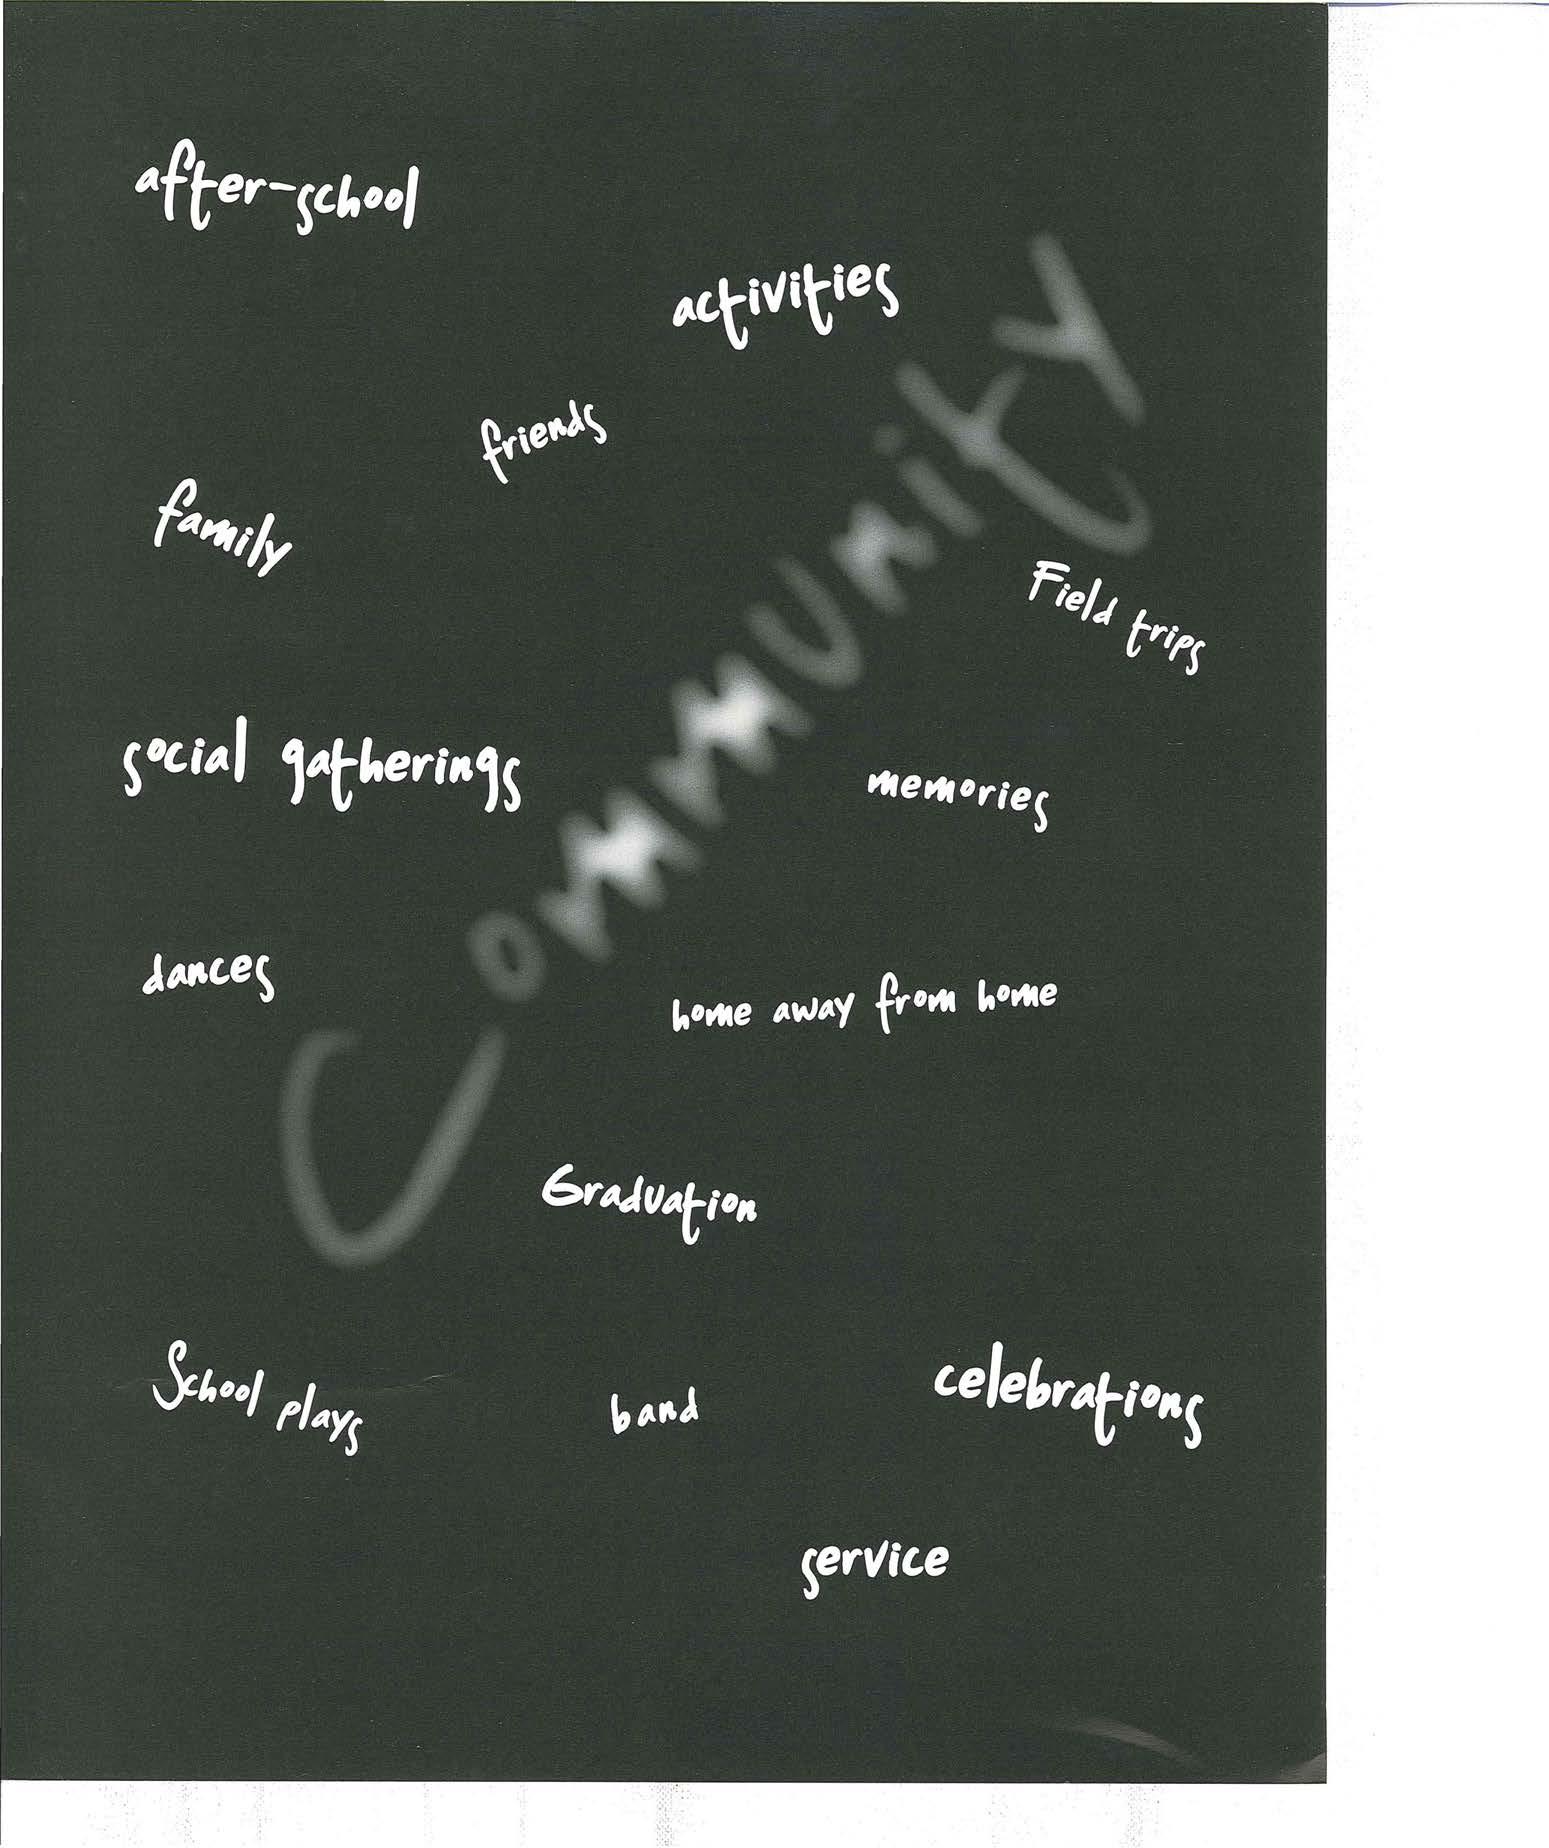 after-school
activities
friends
family
Community
Field trips
social gatherings
memories
dances
home away from home
Graduation
School plays
band
celebrations
service